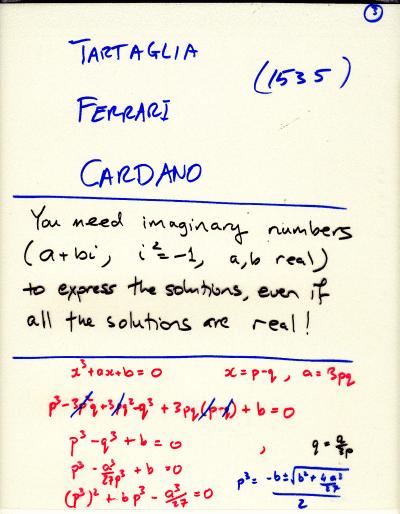 3
TARTAGLIA
(1535)
FERRARI
CARDANO
You need imaginary numbers
(a+bi, i²=-1, a,b real)
to express the solutions, even if
all the solutions are real!
x³+ax+b=0 x=p-q, a=3pq
p³-3p²q+3pq²-q³+3pq(p-q)+b=0
p³-q³+b=0 , q=a/3p
p³-a³/27p³+b=0
(p³)²+bp³-a³/27=0 p³=(-b±√(b²+4a³/27))/2